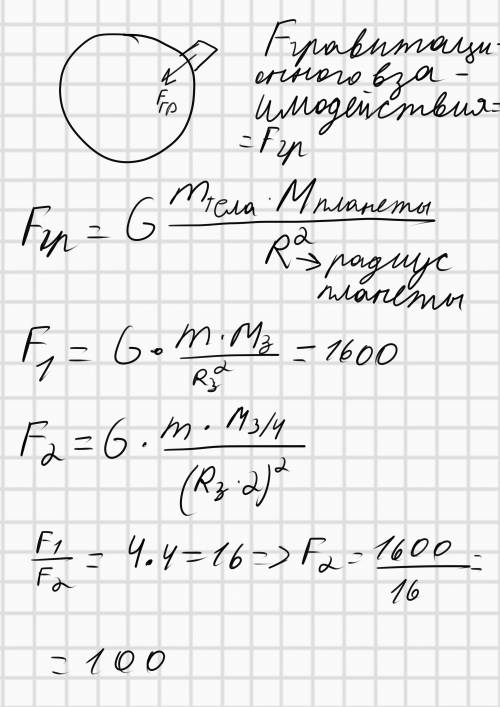 Fгравитаци-
онного вза-
имодействия=
= Fгр
Fгр
Fгр = G (mтела · Mпланеты) / R² → радиус
планеты
F₁ = G · (m · Mз) / Rз² = 1600
F₂ = G · (m · Mз/4) / (Rз · 2)²
F₁/F₂ = 4·4=16 => F₂ = 1600/16 =
= 100